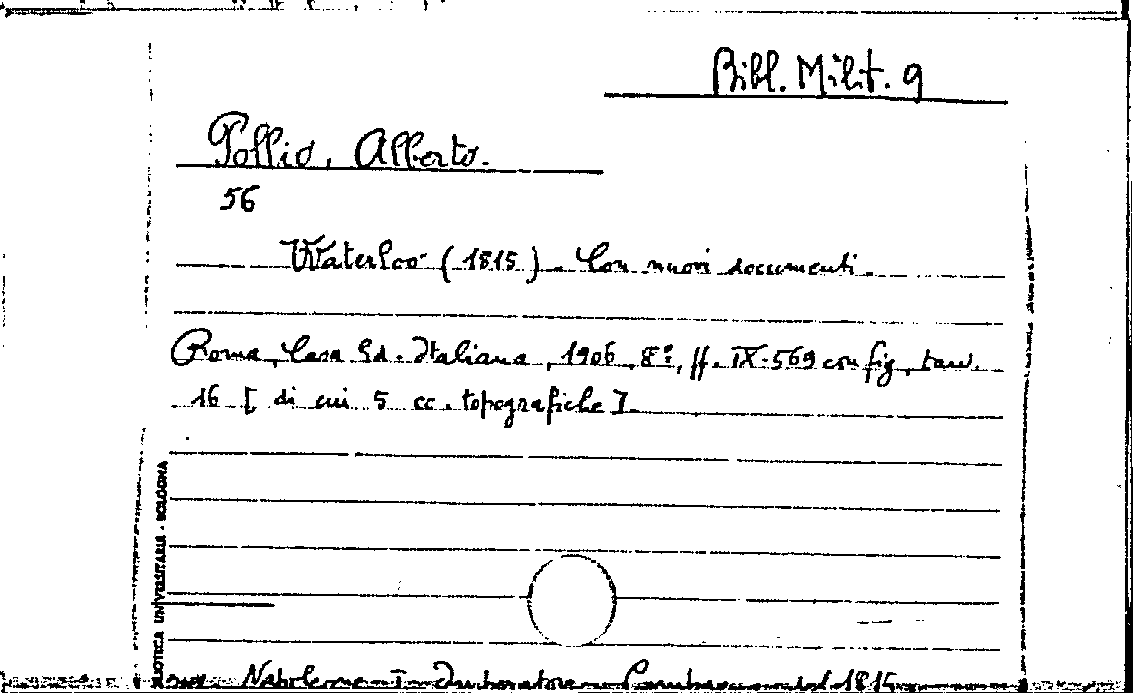 Bibl. Milit. 9
Pollio, Alberto.
56
Waterloo (1815). Con nuovi documenti.
Roma, Casa Ed. Italiana, 1906, 8º, pp. IX-569 con fig., tavv.
16 [di cui 5 cc. topografiche].
BLIOTECA UNIVERSITARIA - BOLOGNA
Napoleone I Imperatore - Campagna del 1815